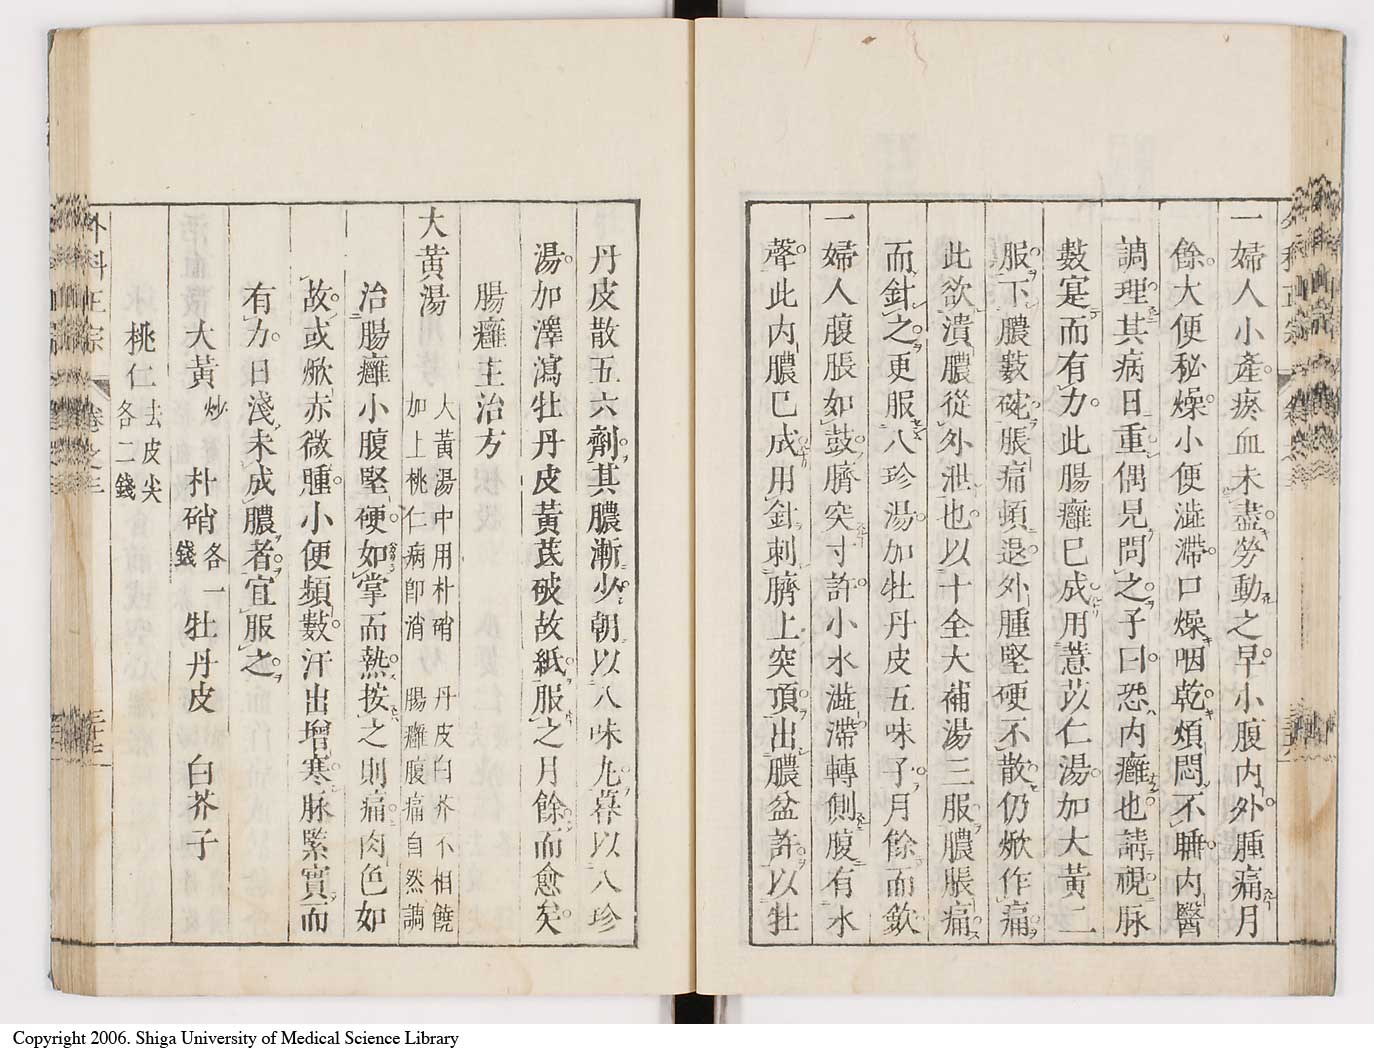 一婦人小產瘀血未盡勞動之早小腹內外腫痛月
餘大便秘燥小便澁滯口燥咽乾煩悶不睡內醫
調理其病日重偶見問之予曰恐內癰也請視脉
數寔而有力此腸癰巳成用薏苡仁湯加大黃二
服下膿數碗脹痛頓退外腫堅硬不散仍焮作痛
此欲潰膿從外泄也以十全大補湯三服膿脹痛
而針之更服八珍湯加牡丹皮五味子月餘而歛
一婦人腹脹如鼓臍突寸許小水澁滯轉側腹有水
聲此內膿巳成用針刺臍上突頂出膿盆許以牡
丹皮散五六劑其膿漸少朝以八味丸暮以八珍
湯加澤瀉牡丹皮黃茋破故紙服之月餘而愈矣
腸癰主治方
大黃湯
大黃湯中用朴硝 丹皮白芥不相饒
加上桃仁病卽消 腸癰腹痛自然調
治腸癰小腹堅硬如掌而熱按之則痛肉色如
故或焮赤微腫小便頻數汗出增寒脉緊實而
有力日淺未成膿者宜服之
大黃炒 朴硝各一錢 牡丹皮 白芥子
桃仁去皮尖各二錢
外科正宗 卷之三
Copyright 2006. Shiga University of Medical Science Library